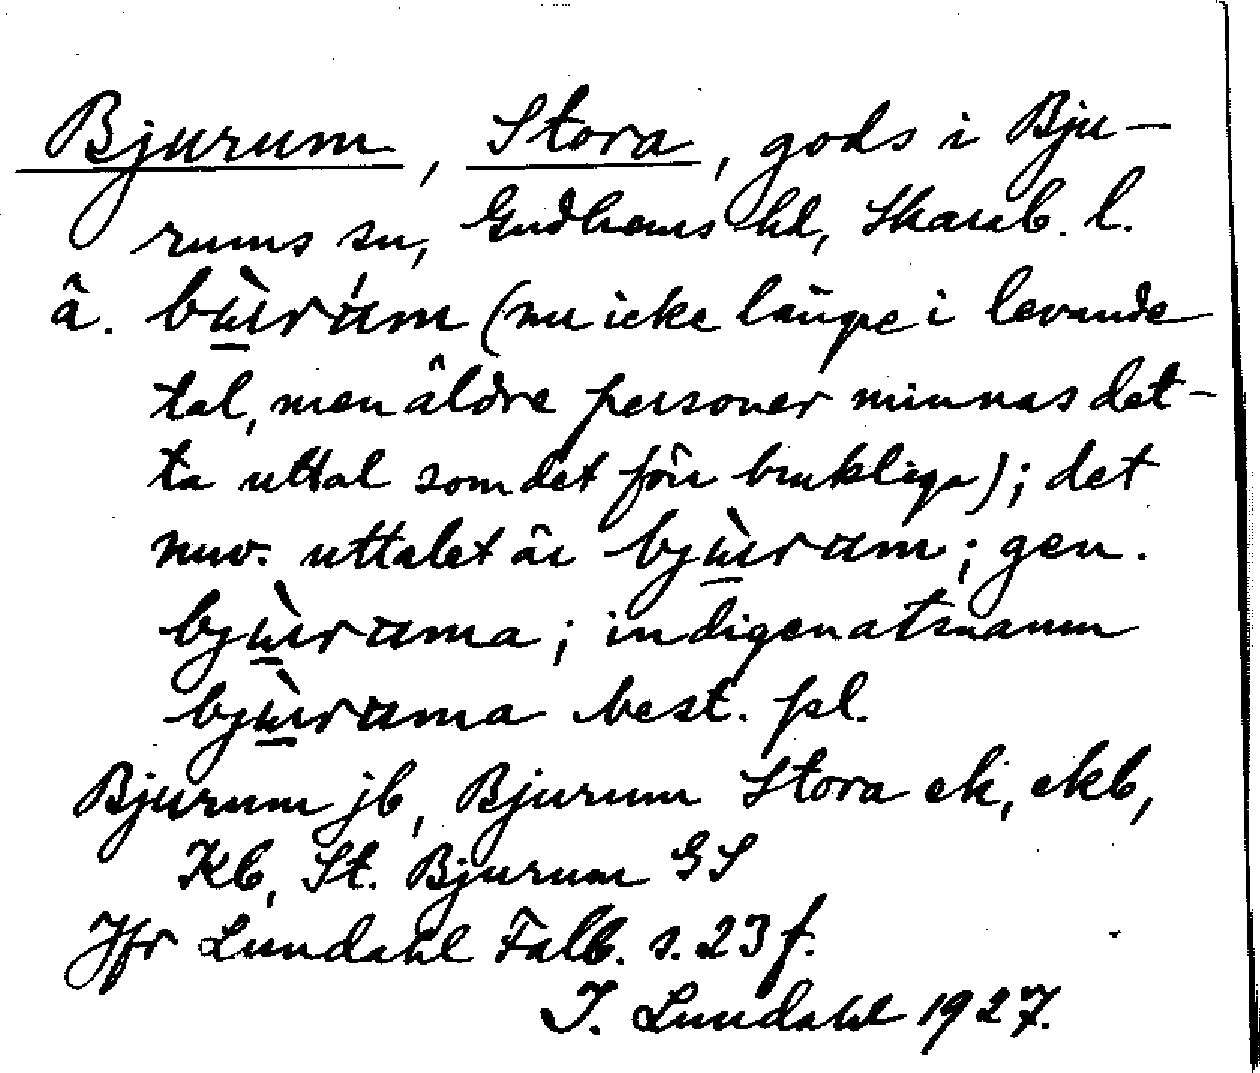 Bjurum, Stora, gods i Bju-
rums sn, Gudhems hd, Skarab. l.
ä. bùrám (nu icke länge i levande
tal, men äldre personer minnas det-
ta uttal som det förr brukliga); det
nuv. uttalet är bjùram; gen.
bjùrama; indigenatsnamn
bjùrama best. pl.
Bjurum jb, Bjurum Stora ek, ekb,
Kb, St. Bjurum GS
Jfr Lundahl Falb. s. 23 f.
I. Lundahl 1927.